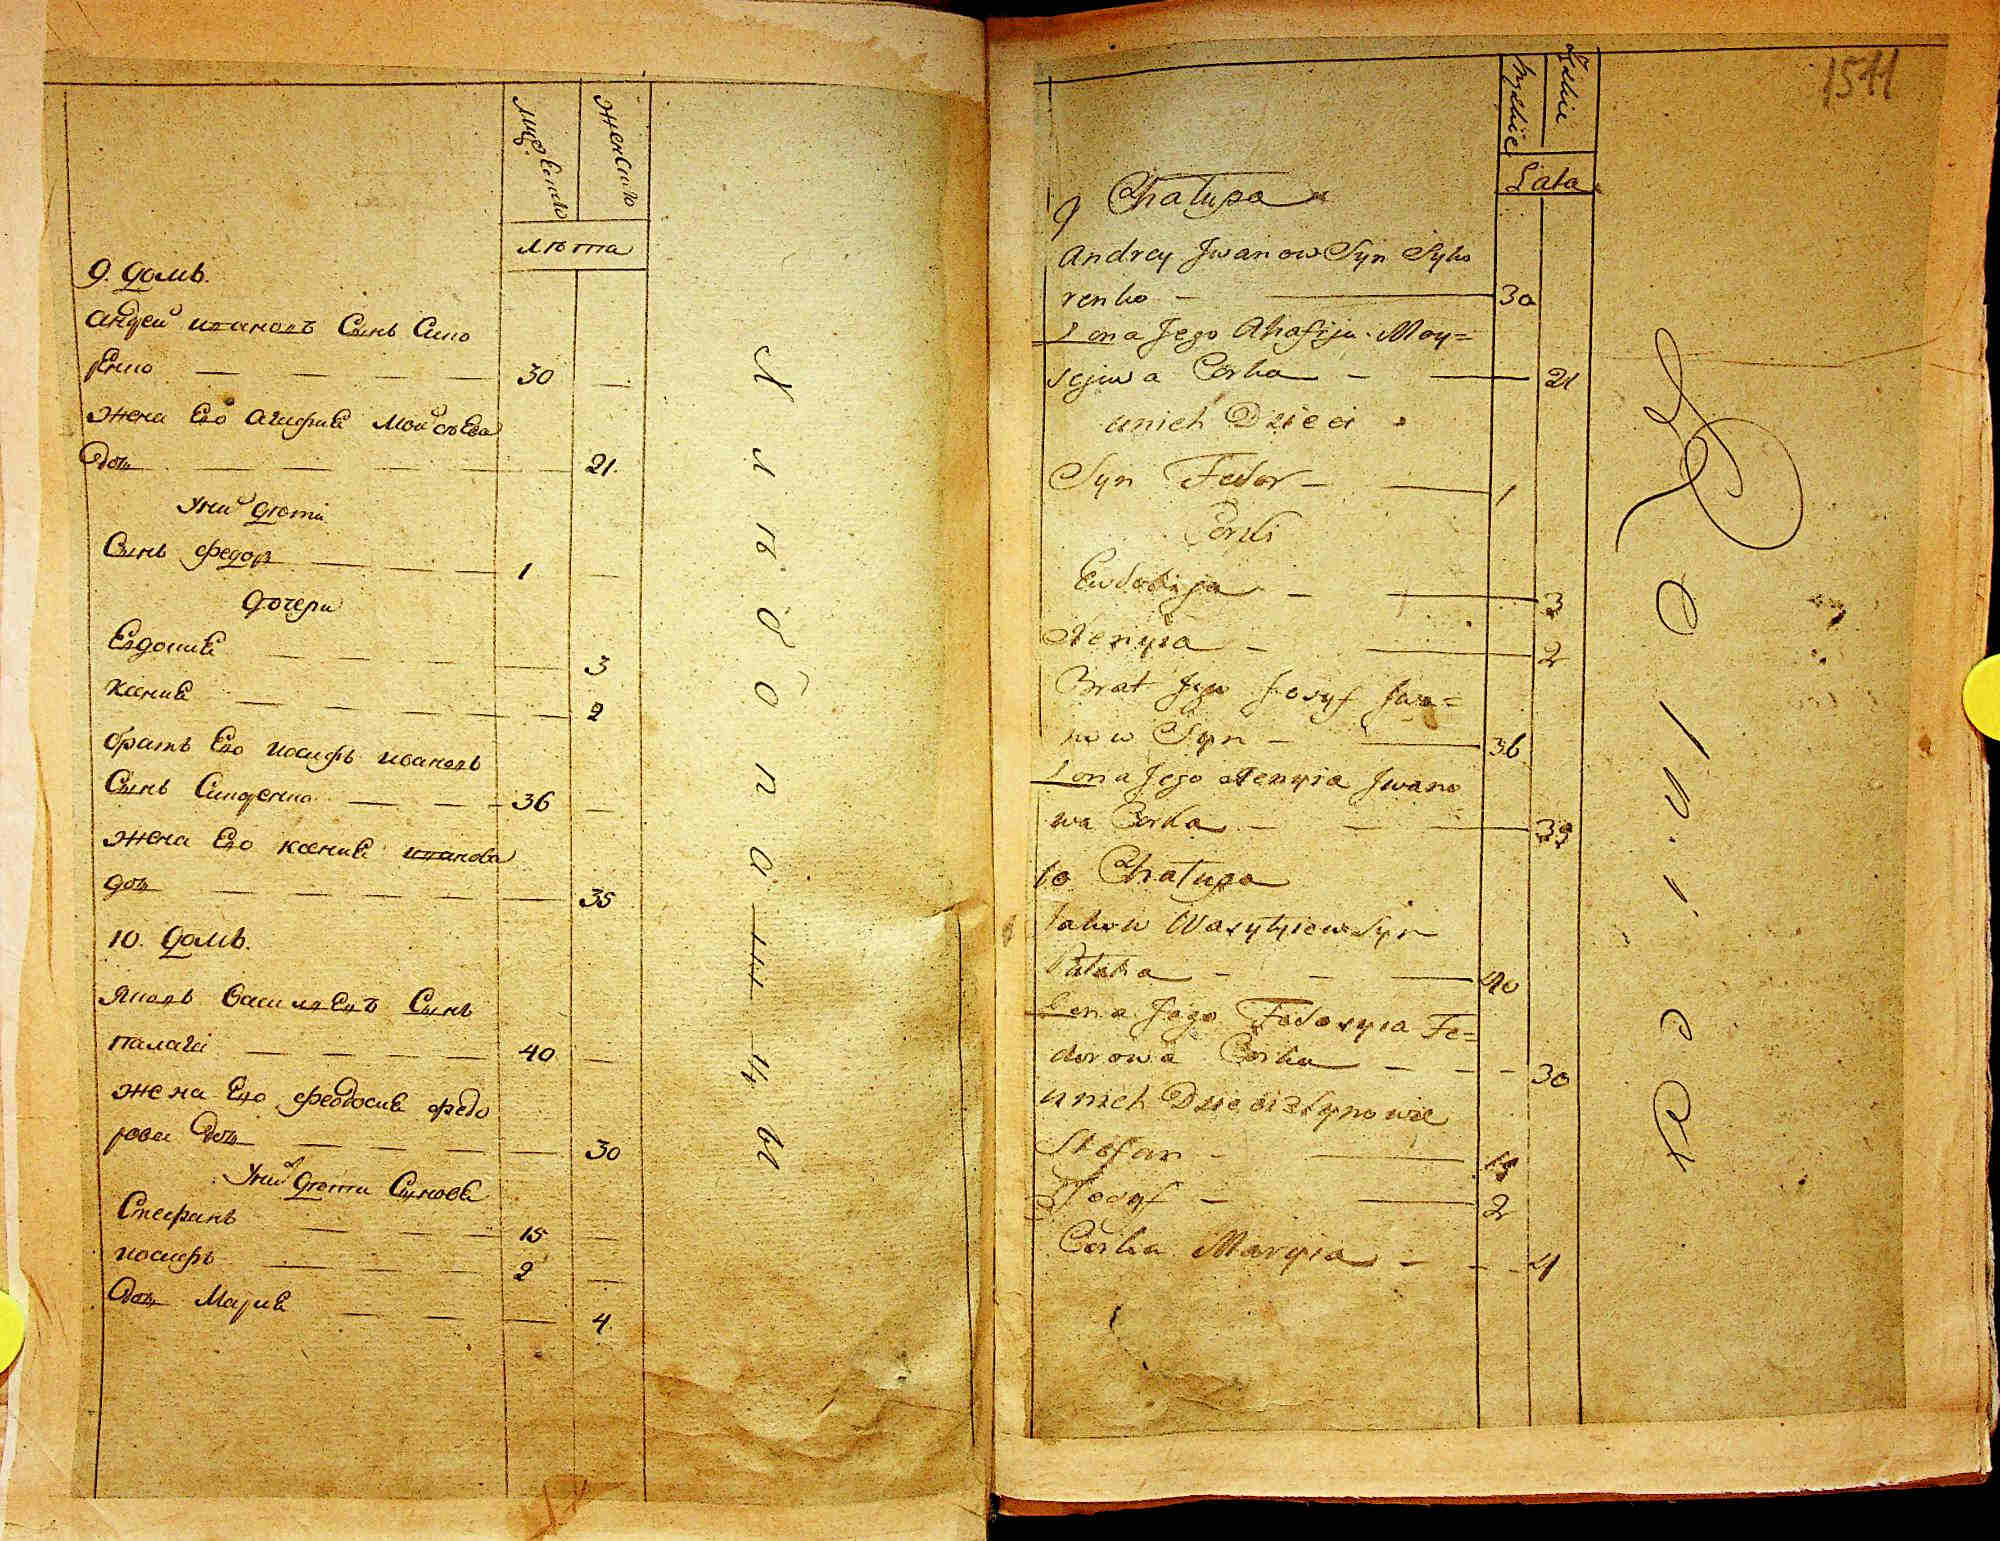 мужеско
женско
лѣта
9. домъ.
андрей ивановъ Сынъ Сико
ренко 30
жена Его агафия Мойсѣева
дочь 21.
у них дѣти
Сынъ федор 1
дочери
Евдокия 3
ксения 2
братъ Его иосифъ ивановъ
Сынъ 36
жена Его ксения иванова
дочь 35
10. домъ.
яковъ василиевъ Сынъ
палага 40
жена Его феодосия федо
рова дочь 30
у них дѣти Синове
Стефанъ 15
иосифъ 2
дочь Мария 4
Хлѣбопашцы
1511
Męskie
Żeńskie
Lata
9 Chałupa
Andrey Jwanow Syn Syko
renko 30
Żona Jego Ahafija Moy=
sejiwa Corka 21
unich Dzieci
Syn Fedor 1
Corki
Ewdokija 3
Xenyia 2
Brat Jego Josyf Jwa=
now Syn 36
Żona Jego Xenyia Jwano
wa Corka 35
10 Chałupa
Jakow Wasylyiew Syn
Palaha 40
Żona Jego Fedosyia Fe=
dorowa Corka 30
unich Dzieci Synowie
Stefan 15
Josyf 2
Corka Maryia 4
Rolnicy